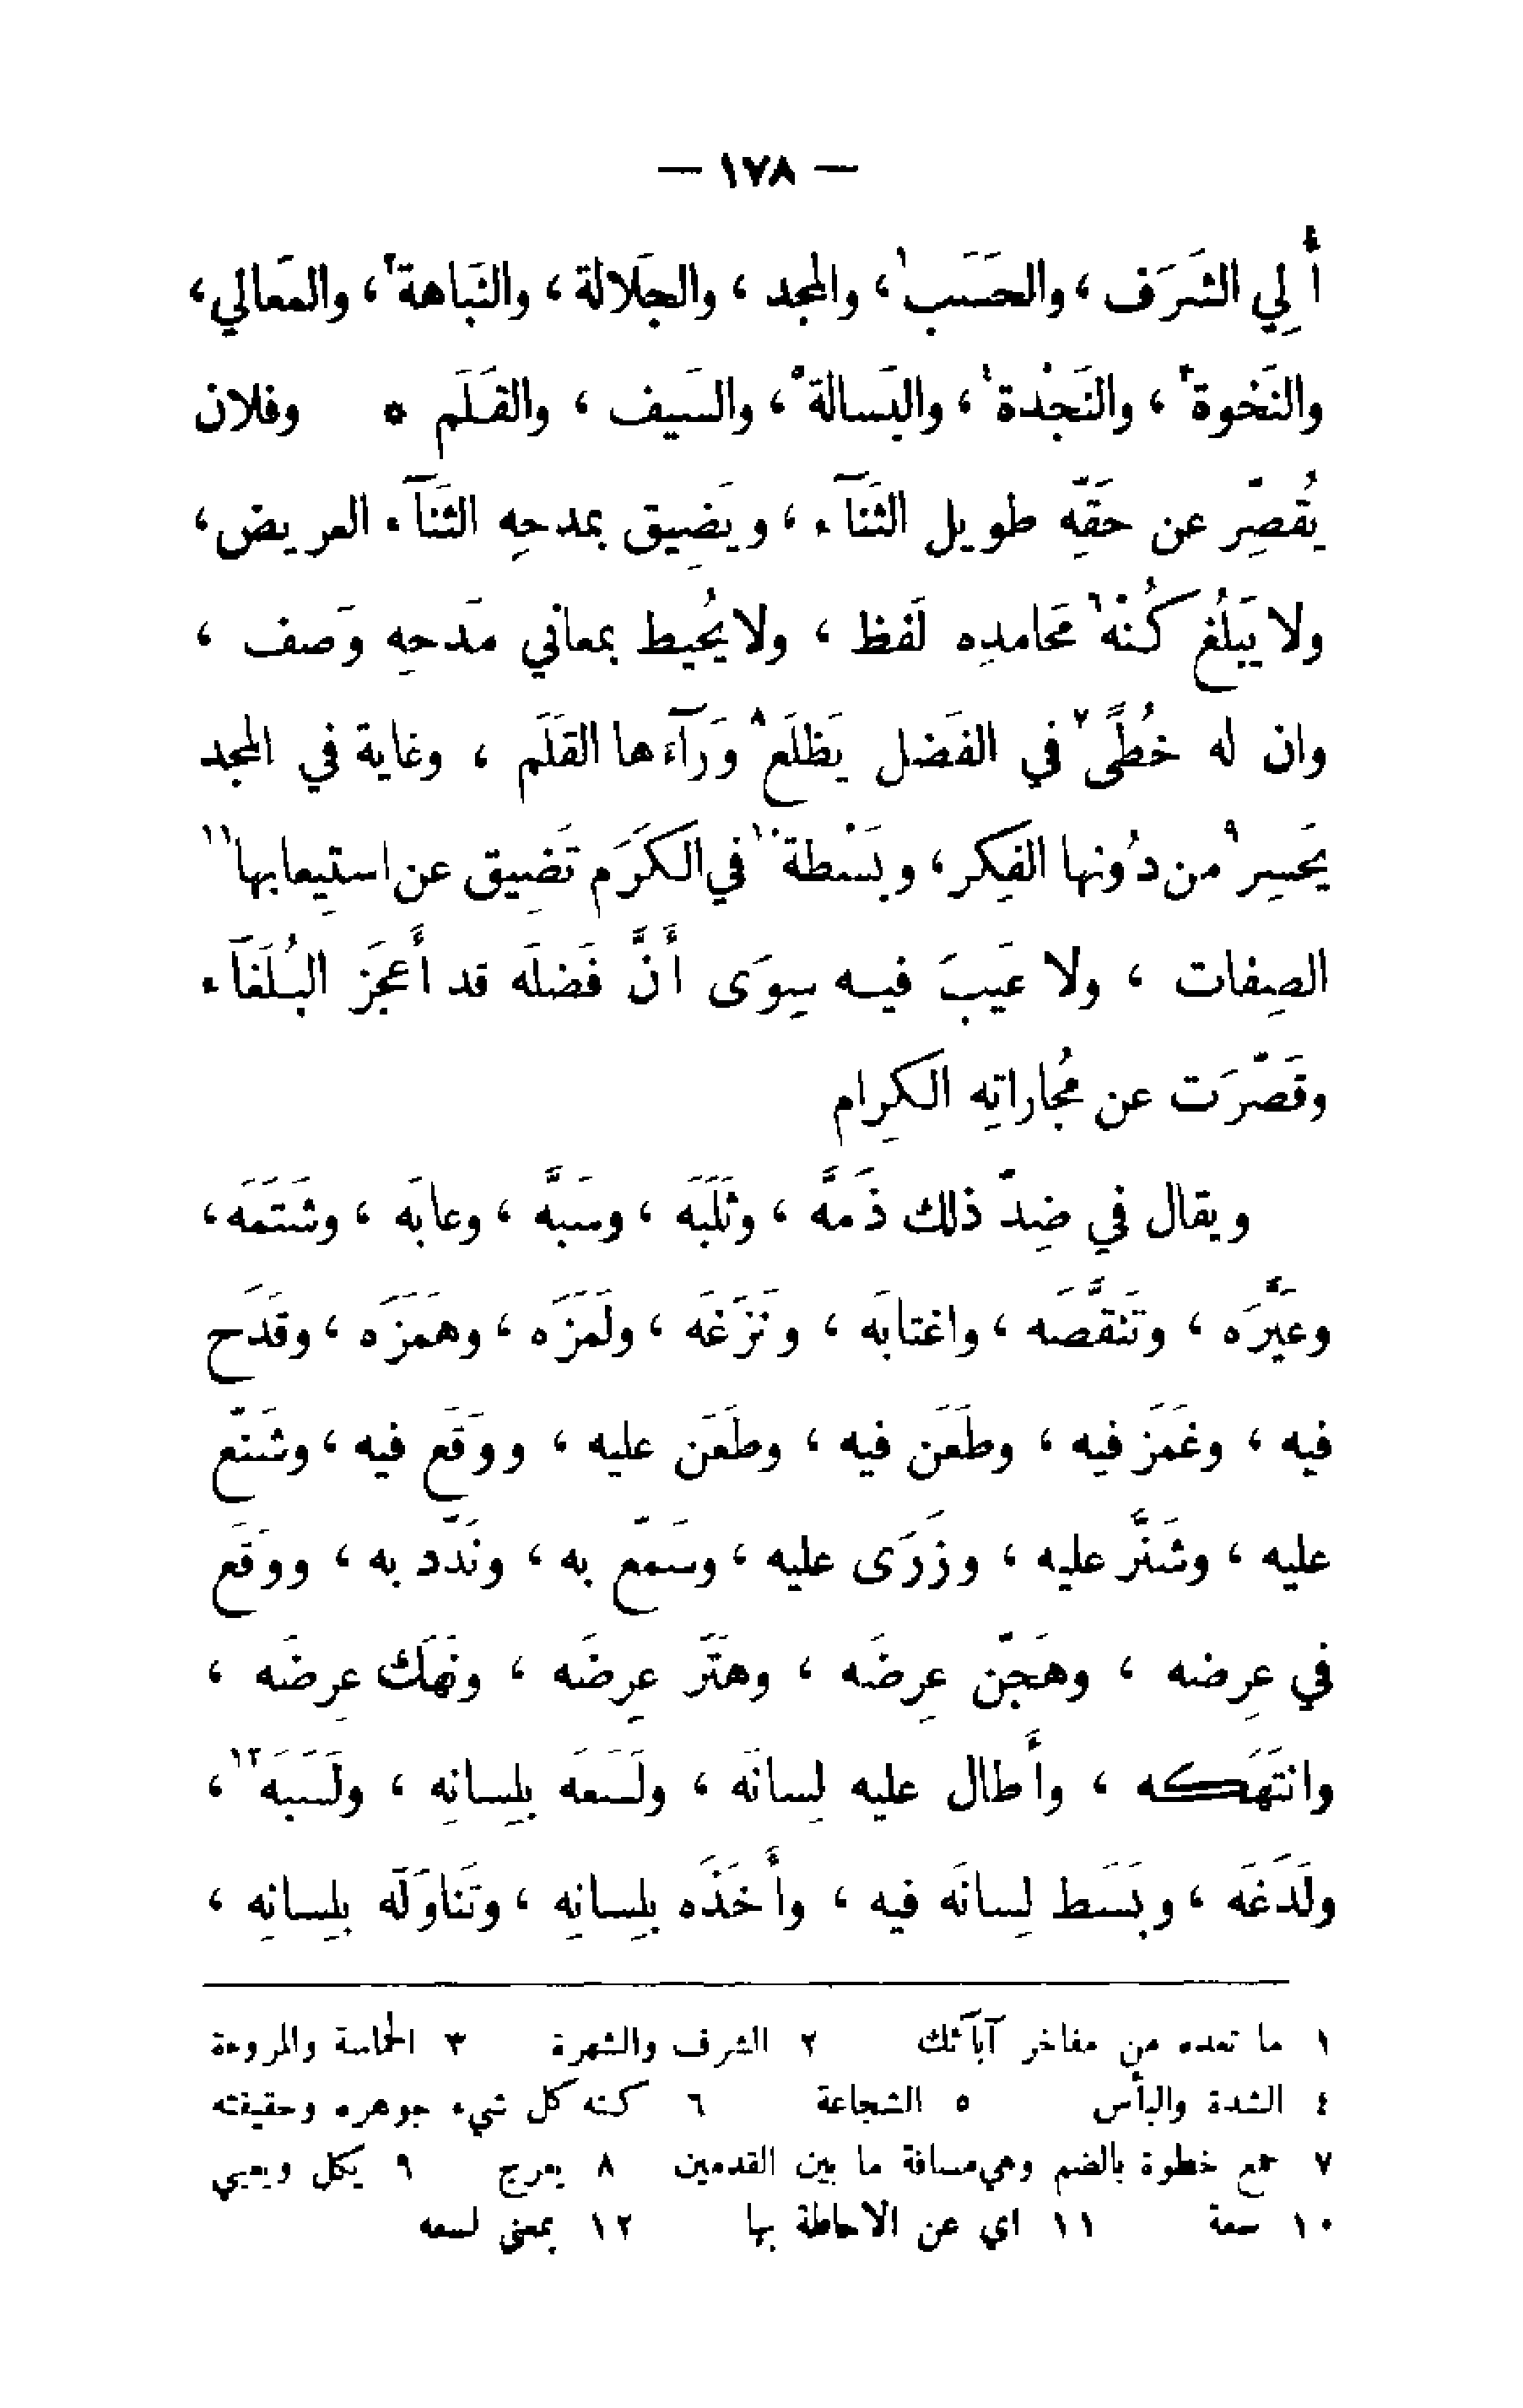 — ١٧٨ —
أُلِي الشَرَف ، والحَسَب١ ، والمجد ، والجَلالة ، والنَباهة٢ ، والمَعالي ،
والنَخوة٣ ، والنَجْدة٤ ، والبَسالة٥ ، والسَيف ، والقَلَم * وفلان
يُقَصِّر عن حَقِّه طويل الثَنآء ، ويَضِيق بمدحِه الثَنآء العريض ،
ولا يَبلُغ كُنْه٦ مَحامدِه لَفظ ، ولا يُحيط بمعاني مَدحِه وَصف ،
وان له خُطًى٧ في الفَضل يَظلَع٨ وَرآءَها القَلَم ، وغاية في المجد
يَحسِر٩ من دُونها الفِكر ، وبَسْطة١٠ في الكَرَم تَضِيق عن استِيعابها١١
الصِفات ، ولا عَيبَ فيه سِوَى أَنَّ فَضلَه قد أَعجَز البُلَغآء
وقَصَّرَت عن مُجاراتِه الكِرام
ويقال في ضِدّ ذلك ذَمَّه ، وثَلَبَه ، وسَبَّه ، وعابَه ، وشَتَمَه ،
وعَيَّرَه ، وتَنَقَّصَه ، واغتابَه ، ونَزَغَه ، ولَمَزَه ، وهَمَزَه ، وقَدَح
فيه ، وغَمَز فيه ، وطَعَن فيه ، وطَعَن عليه ، ووَقَع فيه ، وشَنَّع
عليه ، وشَنَّر عليه ، وزَرَى عليه ، وسَمَّع به ، ونَدَّد به ، ووَقَع
في عِرضه ، وهَجَّن عِرضَه ، وهَتَر عِرضَه ، ونَهَك عِرضَه ،
وانتَهَكه ، وأَطال عليه لِسانَه ، ولَسَعَه بلِسانِه ، ولَسَبَه١٢ ،
ولَدَغَه ، وبَسَط لِسانَه فيه ، وأَخَذَه بلِسانِه ، وتَناوَلَه بلِسانِه ،
١ ما تعده من مفاخر آبآئك ٢ الشرف والشهرة ٣ الحماسة والمروءة
٤ الشدة والبأس ٥ الشجاعة ٦ كنه كل شيء جوهره وحقيقته
٧ جمع خطوة بالضم وهي مسافة ما بين القدمين ٨ يعرج ٩ يكل ويعيي
١٠ سعة ١١ اي عن الاحاطة بها ١٢ بمعنى لسعه